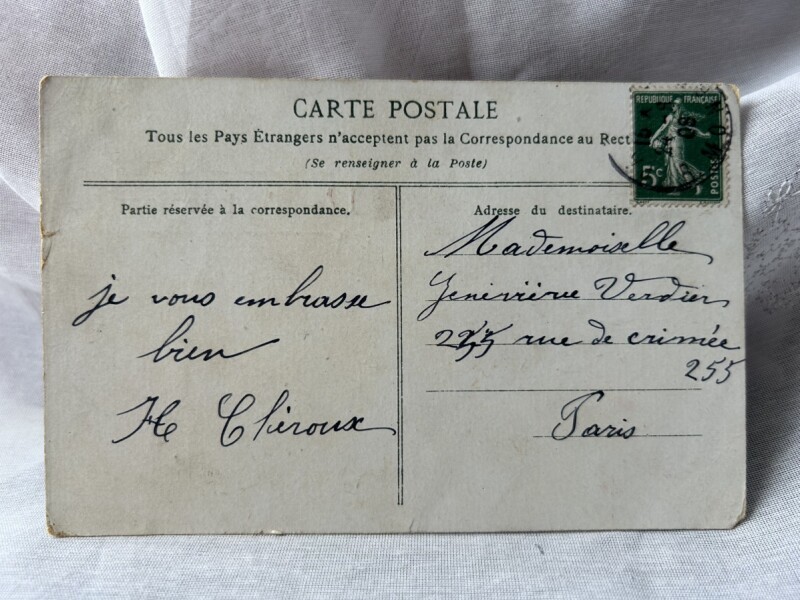 CARTE POSTALE
Tous les Pays Étrangers n'acceptent pas la Correspondance au Rect
(Se renseigner à la Poste)
REPUBLIQUE FRANÇAISE
5c
POSTES
08
Partie réservée à la correspondance.
Adresse du destinataire.
je vous embrasse
bien
H Chéroux
Mademoiselle
Geneviève Verdier
rue de crimée
255
Paris